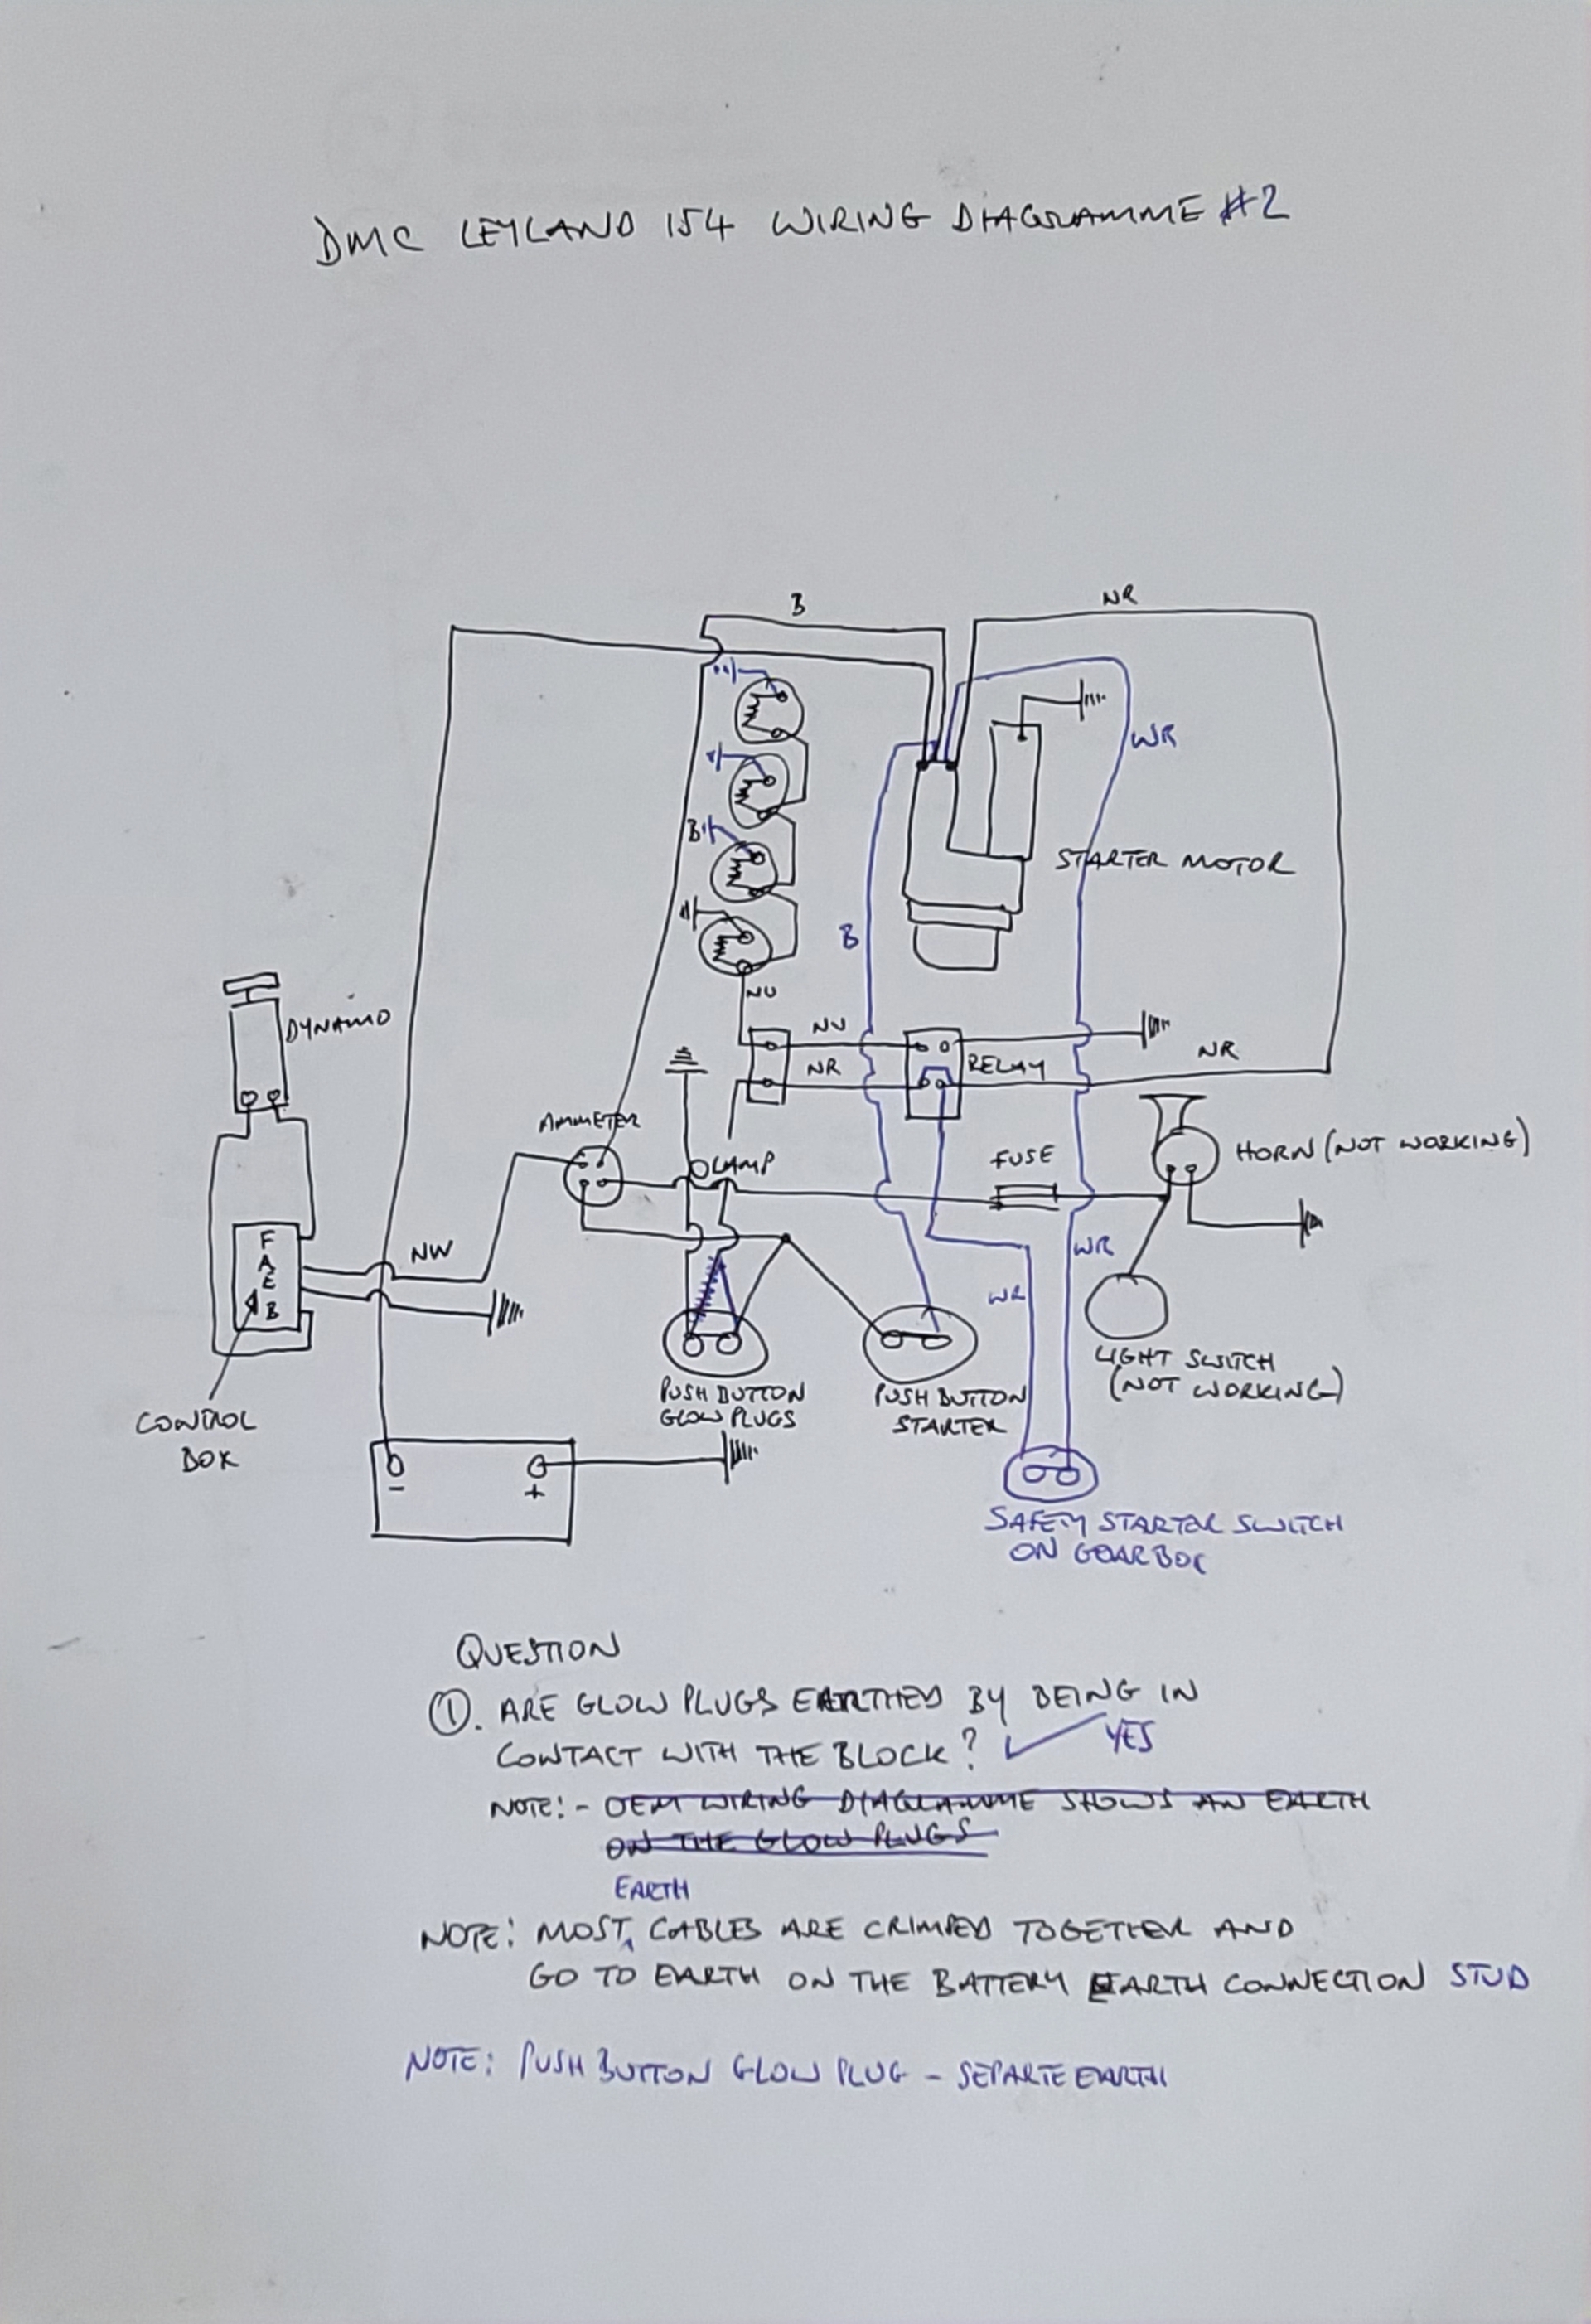 DMC LEYLAND 154 WIRING DIAGRAMME #2
B
NR
WR
B
STARTER MOTOR
B
NU
DYNAMO
NU
NR
RELAY
NR
AMMETER
LAMP
FUSE
HORN (NOT WORKING)
F
A
E
B
NW
WR
WR
LIGHT SWITCH
(NOT WORKING)
PUSH BUTTON
GLOW PLUGS
PUSH BUTTON
STARTER
CONTROL
BOX
-
+
SAFETY STARTER SWITCH
ON GEARBOX
QUESTION
①. ARE GLOW PLUGS EARTHED BY BEING IN
CONTACT WITH THE BLOCK? YES
NOTE:- OEM WIRING DIAGRAMME SHOWS AN EARTH
ON THE GLOW PLUGS
EARTH
NOTE: MOST CABLES ARE CRIMPED TOGETHER AND
GO TO EARTH ON THE BATTERY EARTH CONNECTION STUD
NOTE: PUSH BUTTON GLOW PLUG - SEPARTE EARTH